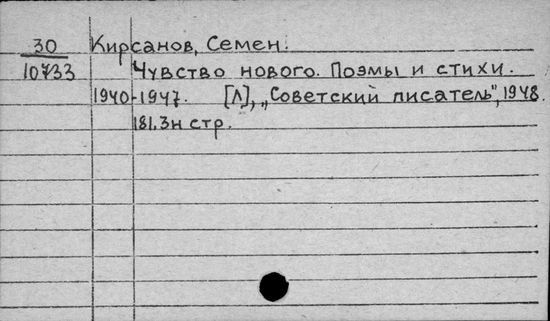 30 Кирсанов, Семен.
10733 Чувство нового. Поэмы и стихи.
1940-1947. [Л], „Советский писатель", 1948.
181.3н стр.